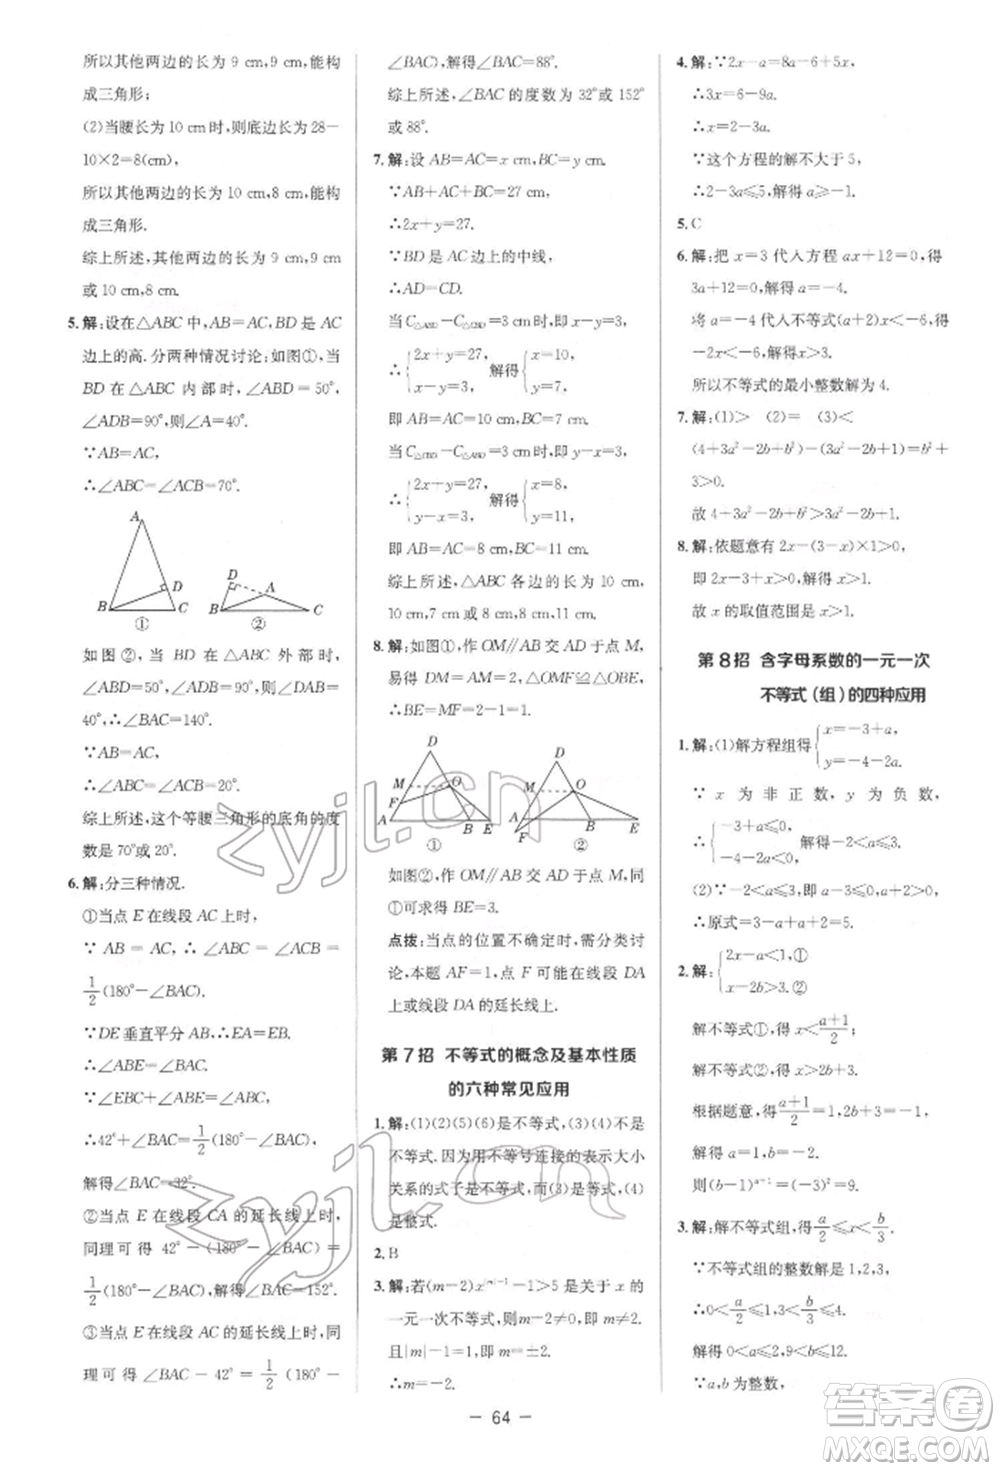 所以其他两边的长为 9 cm,9 cm,能构
成三角形;
(2)当腰长为 10 cm 时,则底边长为 28-
10×2=8(cm),
所以其他两边的长为 10 cm,8 cm,能构
成三角形.
综上所述,其他两边的长为 9 cm,9 cm
或 10 cm,8 cm.
5. 解:设在△ABC 中,AB=AC,BD 是 AC
边上的高.分两种情况讨论:如图①,当
BD 在△ABC 内部时,∠ABD=50°,
∠ADB=90°,则∠A=40°.
∵AB=AC,
∴∠ABC=∠ACB=70°.
A D B C ①
D A B C ②
如图②,当 BD 在△ABC 外部时,
∠ABD=50°,∠ADB=90°,则∠BAD=
40°,∴∠BAC=140°.
∵AB=AC,
∴∠ABC=∠ACB=20°.
综上所述,这个等腰三角形的底角的度
数是 70°或 20°.
6. 解:分三种情况.
①当点 E 在线段 AC 上时,
∵AB=AC,∴∠ABC=∠ACB=
1/2(180°-∠BAC).
∵DE 垂直平分 AB,∴EA=EB.
∴∠ABE=∠BAC.
∵∠EBC+∠ABE=∠ABC,
∴42°+∠BAC=1/2(180°-∠BAC),
解得∠BAC=32°.
②当点 E 在线段 CA 的延长线上时,
同理可得 42°-(180°-∠BAC)=
1/2(180°-∠BAC),解得∠BAC=152°.
③当点 E 在线段 AC 的延长线上时,同
理可得∠BAC-42°=1/2(180°-
∠BAC),解得∠BAC=88°.
综上所述,∠BAC 的度数为 32°或 152°
或 88°.
7. 解:设 AB=AC=x cm,BC=y cm.
∵AB+AC+BC=27 cm,
∴2x+y=27.
∵BD 是 AC 边上的中线,
∴AD=CD.
当 C△ABD-C△CBD=3 cm 时,即 x-y=3,
∴{2x+y=27, x-y=3, 解得{x=10, y=7,
即 AB=AC=10 cm,BC=7 cm.
当 C△CBD-C△ABD=3 cm 时,即 y-x=3,
∴{2x+y=27, y-x=3, 解得{x=8, y=11,
即 AB=AC=8 cm,BC=11 cm.
综上所述,△ABC 的腰和底边的长为
10 cm,7 cm 或 8 cm,11 cm.
8. 解:如图①,作 OM∥AB 交 AD 于点 M,
易得 DM=AM=2,△OMF≌△OBE,
∴BE=MF=2-1=1.
D M O F A B E ①
D M O A F B E ②
如图②,作 OM∥AB 交 AD 于点 M,同
①可求得 BE=3.
点拨:当点的位置不确定时,需分类讨
论,本题 AF=1,点 F 可能在线段 DA
上或线段 DA 的延长线上.
第 7 招 不等式的概念及基本性质
的六种常见应用
1. 解:(1)(2)(5)(6)是不等式,(3)(4)不是
不等式.因为用不等号连接的表示大小
关系的式子是不等式,而(3)是等式,(4)
是整式.
2. B
3. 解:若(m-2)x^|m|-1-1>5 是关于 x 的
一元一次不等式,则 m-2≠0,即 m≠2,
且|m|-1=1,解得 m=±2.
∴m=-2.
4. 解:∵2x-a=8a-6+5x,
∴3x=6-9a.
∴x=2-3a.
∵这个方程的解不大于 5,
∴2-3a≤5,解得 a≥-1.
5. C
6. 解:把 x=3 代入方程 ax+12=0,得
3a+12=0,解得 a=-4.
将 a=-4 代入不等式(a+2)x<-6,得
-2x<-6,解得 x>3.
所以不等式的最小整数解为 4.
7. 解:(1)> (2)= (3)<
(4+3a²-2b+b²)-(3a²-2b+1)=b²+
3>0.
故 4+3a²-2b+b²>3a²-2b+1.
8. 解:依题意有 2x-(3-x)×1>0,
即 2x-3+x>0,解得 x>1.
故 x 的取值范围是 x>1.
第 8 招 含字母系数的一元一次
不等式(组)的四种应用
1. 解:(1)解方程组得{x=-3+a, y=-4-2a.
∵x 为非正数,y 为负数,
∴{-3+a≤0, -4-2a<0. 解得-2<a≤3.
(2)∵-2<a≤3,即 a-3≤0,a+2>0,
∴原式=3-a+a+2=5.
2. 解:{2x-a<1,① x-2b>3.②
解不等式①,得 x<(a+1)/2.
解不等式②,得 x>2b+3.
根据题意,得(a+1)/2=1,2b+3=-1,
解得 a=1,b=-2.
则(b-1)^(a-1)=(-3)²=9.
3. 解:解不等式组,得 a/2≤x<b/3.
∵不等式组的整数解是 1,2,3,
∴0<a/2≤1,3<b/3≤4,
解得 0<a≤2,9<b≤12.
∵a,b 为整数,
- 64 -
zyjl.cn
zyjl.cn
答案圈
MXQE.COM